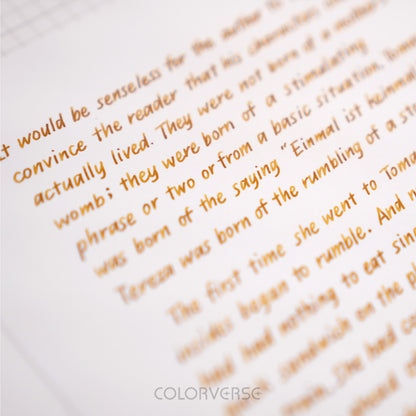 It would be senseless for the author to
convince the reader that his characters
actually lived. They were not born of a mother's
womb; they were born of a stimulating
phrase or two or from a basic situation. Tomas
was born of the saying "Einmal ist keinmal
Tereza was born of the rumbling of a
The first time she went to Tomas
insides began to rumble. And
had had nothing to eat since
sandwich on the
She had
COLORVERSE